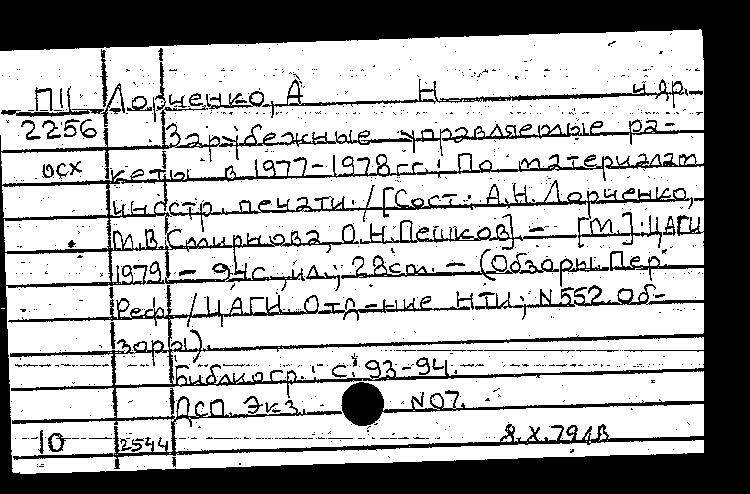 П11 Лорченко, А Н и др.
2256 Зарубежные управляемые ра-
осх кеты в 1977-1978гг.: По материалам
иностр. печати./[Сост.: А.Н.Лорченко,
М.В.Смирнова, О.Н.Пешков]. - [М.]: ЦАГИ
1979. - 94с., ил.; 28см. - (Обзоры. Пер.
Реф. / ЦАГИ. Отд-ние НТИ; N552. Об-
зоры).
Библиогр.: с. 93-94.
ДСП. Экз. N07.
10 2544